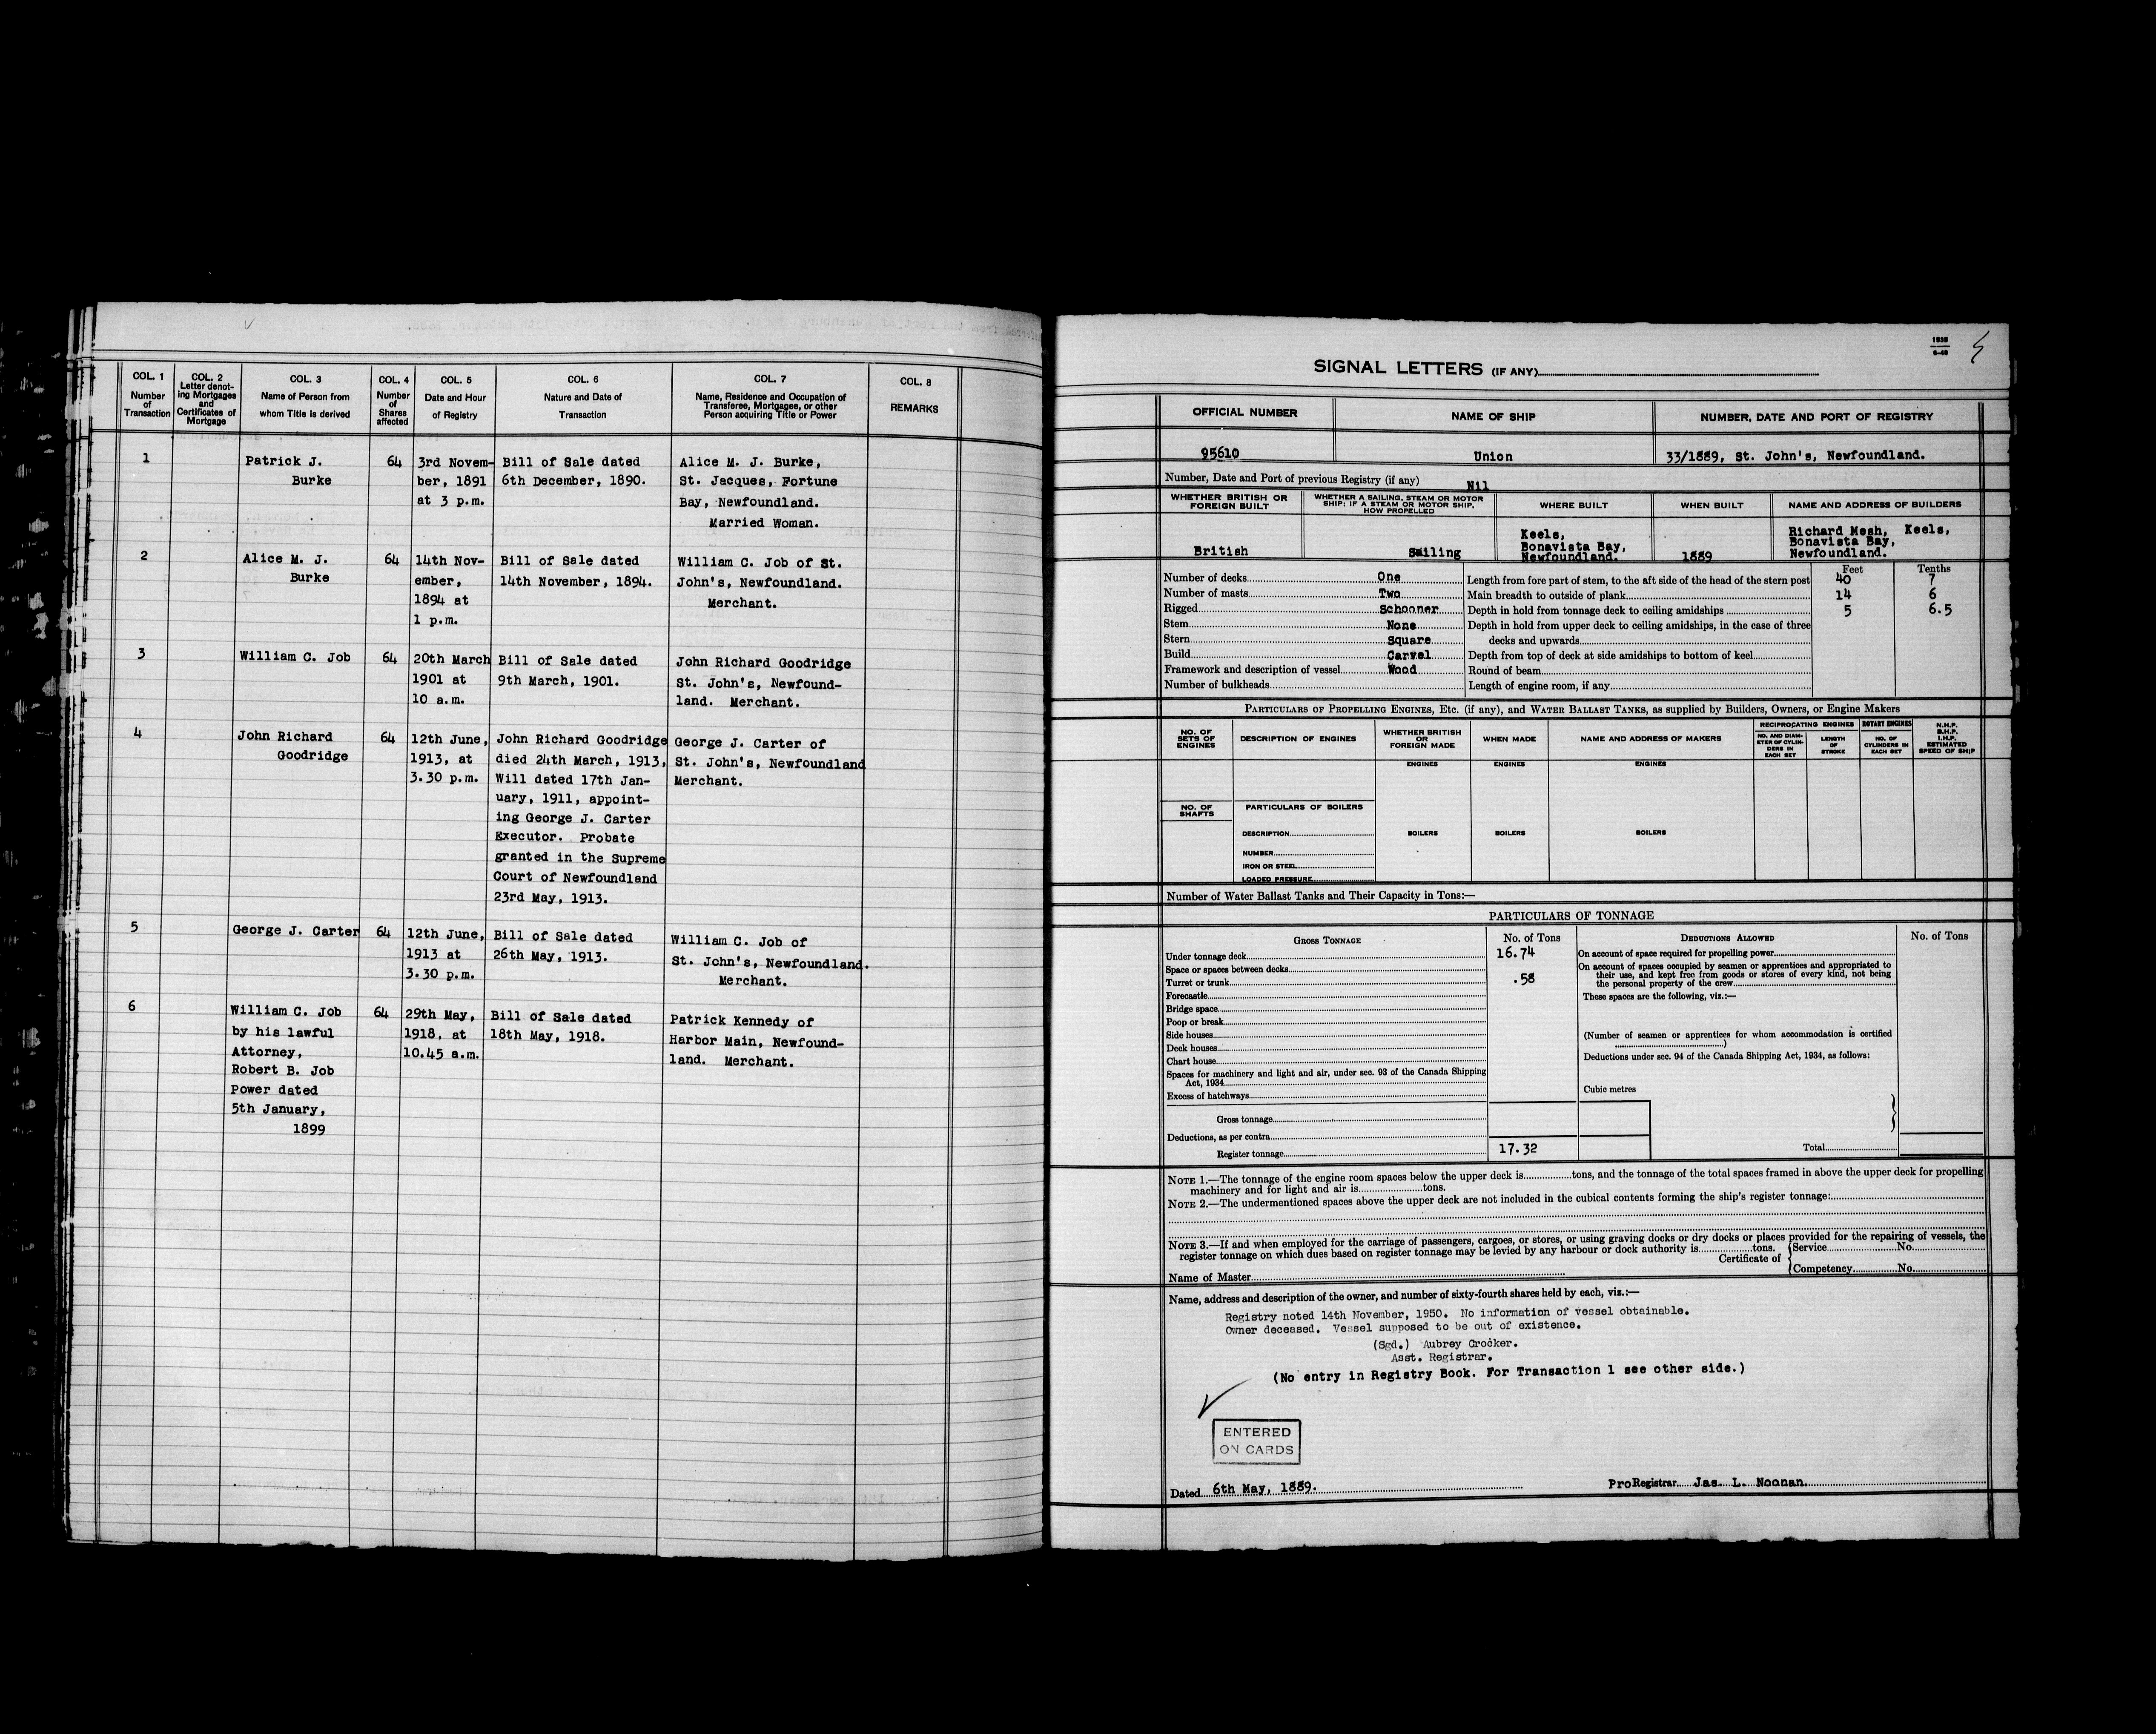 COL. 1
Number
of
Transaction
COL. 2
Letter denot-
ing Mortgages
and
Certificates of
Mortgage
COL. 3
Name of Person from
whom Title is derived
COL. 4
Number
of
Shares
affected
COL. 5
Date and Hour
of Registry
COL. 6
Nature and Date of
Transaction
COL. 7
Name, Residence and Occupation of
Transferee, Mortgagee, or other
Person acquiring Title or Power
COL. 8
REMARKS
1
Patrick J.
Burke
64
3rd Novem-
ber, 1891
at 3 p.m.
Bill of Sale dated
6th December, 1890.
Alice M. J. Burke,
St. Jacques, Fortune
Bay, Newfoundland.
Married Woman.
2
Alice M. J.
Burke
64
14th Nov-
ember,
1894 at
1 p.m.
Bill of Sale dated
14th November, 1894.
William C. Job of St.
John's, Newfoundland.
Merchant.
3
William C. Job
64
20th March
1901 at
10 a.m.
Bill of Sale dated
9th March, 1901.
John Richard Goodridge
St. John's, Newfound-
land. Merchant.
4
John Richard
Goodridge
64
12th June,
1913, at
3.30 p.m.
John Richard Goodridge
died 24th March, 1913,
Will dated 17th Jan-
uary, 1911, appoint-
ing George J. Carter
Executor. Probate
granted in the Supreme
Court of Newfoundland
23rd May, 1913.
George J. Carter of
St. John's, Newfoundland
Merchant.
5
George J. Carter
64
12th June,
1913 at
3.30 p.m.
Bill of Sale dated
26th May, 1913.
William C. Job of
St. John's, Newfoundland.
Merchant.
6
William C. Job
by his lawful
Attorney,
Robert B. Job
Power dated
5th January,
1899
64
29th May,
1918, at
10.45 a.m.
Bill of Sale dated
18th May, 1918.
Patrick Kennedy of
Harbor Main, Newfound-
land. Merchant.
SIGNAL LETTERS (IF ANY)
OFFICIAL NUMBER
NAME OF SHIP
NUMBER, DATE AND PORT OF REGISTRY
95610
Union
33/1889, St. John's, Newfoundland.
Number, Date and Port of previous Registry (if any) Nil
WHETHER BRITISH OR
FOREIGN BUILT
WHETHER A SAILING, STEAM OR MOTOR
SHIP; IF A STEAM OR MOTOR SHIP,
HOW PROPELLED
WHERE BUILT
WHEN BUILT
NAME AND ADDRESS OF BUILDERS
British
Sailing
Keels,
Bonavista Bay,
Newfoundland.
1889
Richard Mesh, Keels,
Bonavista Bay,
Newfoundland.
Feet
Tenths
Number of decks One
Number of masts Two
Rigged Schooner
Stem None
Stern Square
Build Carvel
Framework and description of vessel Wood
Number of bulkheads
Length from fore part of stem, to the aft side of the head of the stern post 40 7
Main breadth to outside of plank 14 6
Depth in hold from tonnage deck to ceiling amidships 5 6.5
Depth in hold from upper deck to ceiling amidships, in the case of three
decks and upwards
Depth from top of deck at side amidships to bottom of keel
Round of beam
Length of engine room, if any
PARTICULARS OF PROPELLING ENGINES, ETC. (if any), and WATER BALLAST TANKS, as supplied by Builders, Owners, or Engine Makers
NO. OF
SETS OF
ENGINES
DESCRIPTION OF ENGINES
WHETHER BRITISH
OR
FOREIGN MADE
WHEN MADE
NAME AND ADDRESS OF MAKERS
RECIPROCATING ENGINES
NO. AND DIAM-
ETER OF CYLIN-
DERS IN
EACH SET
LENGTH
OF
STROKE
ROTARY ENGINES
NO. OF
CYLINDERS IN
EACH SET
N.H.P.
B.H.P.
I.H.P.
ESTIMATED
SPEED OF SHIP
ENGINES
ENGINES
ENGINES
NO. OF
SHAFTS
PARTICULARS OF BOILERS
DESCRIPTION
BOILERS
BOILERS
BOILERS
NUMBER
IRON OR STEEL
LOADED PRESSURE
Number of Water Ballast Tanks and Their Capacity in Tons:—
PARTICULARS OF TONNAGE
GROSS TONNAGE
No. of Tons
Under tonnage deck 16.74
Space or spaces between decks
Turret or trunk .58
Forecastle
Bridge space
Poop or break
Side houses
Deck houses
Chart house
Spaces for machinery and light and air, under sec. 93 of the Canada Shipping
Act, 1934
Excess of hatchways
Gross tonnage
Deductions, as per contra
Register tonnage 17.32
DEDUCTIONS ALLOWED
No. of Tons
On account of space required for propelling power
On account of spaces occupied by seamen or apprentices and appropriated to
their use, and kept free from goods or stores of every kind, not being
the personal property of the crew
These spaces are the following, viz.:—
(Number of seamen or apprentices for whom accommodation is certified
)
Deductions under sec. 94 of the Canada Shipping Act, 1934, as follows:
Cubic metres
Total
NOTE 1.—The tonnage of the engine room spaces below the upper deck is tons, and the tonnage of the total spaces framed in above the upper deck for propelling
machinery and for light and air is tons.
NOTE 2.—The undermentioned spaces above the upper deck are not included in the cubical contents forming the ship's register tonnage:
NOTE 3.—If and when employed for the carriage of passengers, cargoes, or stores, or using graving docks or dry docks or places provided for the repairing of vessels, the
register tonnage on which dues based on register tonnage may be levied by any harbour or dock authority is tons.
Certificate of
Service No.
Competency No.
Name of Master
Name, address and description of the owner, and number of sixty-fourth shares held by each, viz.:—
Registry noted 14th November, 1950. No information of vessel obtainable.
Owner deceased. Vessel supposed to be out of existence.
(Sgd.) Aubrey Crocker.
Asst. Registrar.
(No entry in Registry Book. For Transaction 1 see other side.)
ENTERED
ON CARDS
Dated 6th May, 1889.
Pro Registrar Jas. L. Noonan.